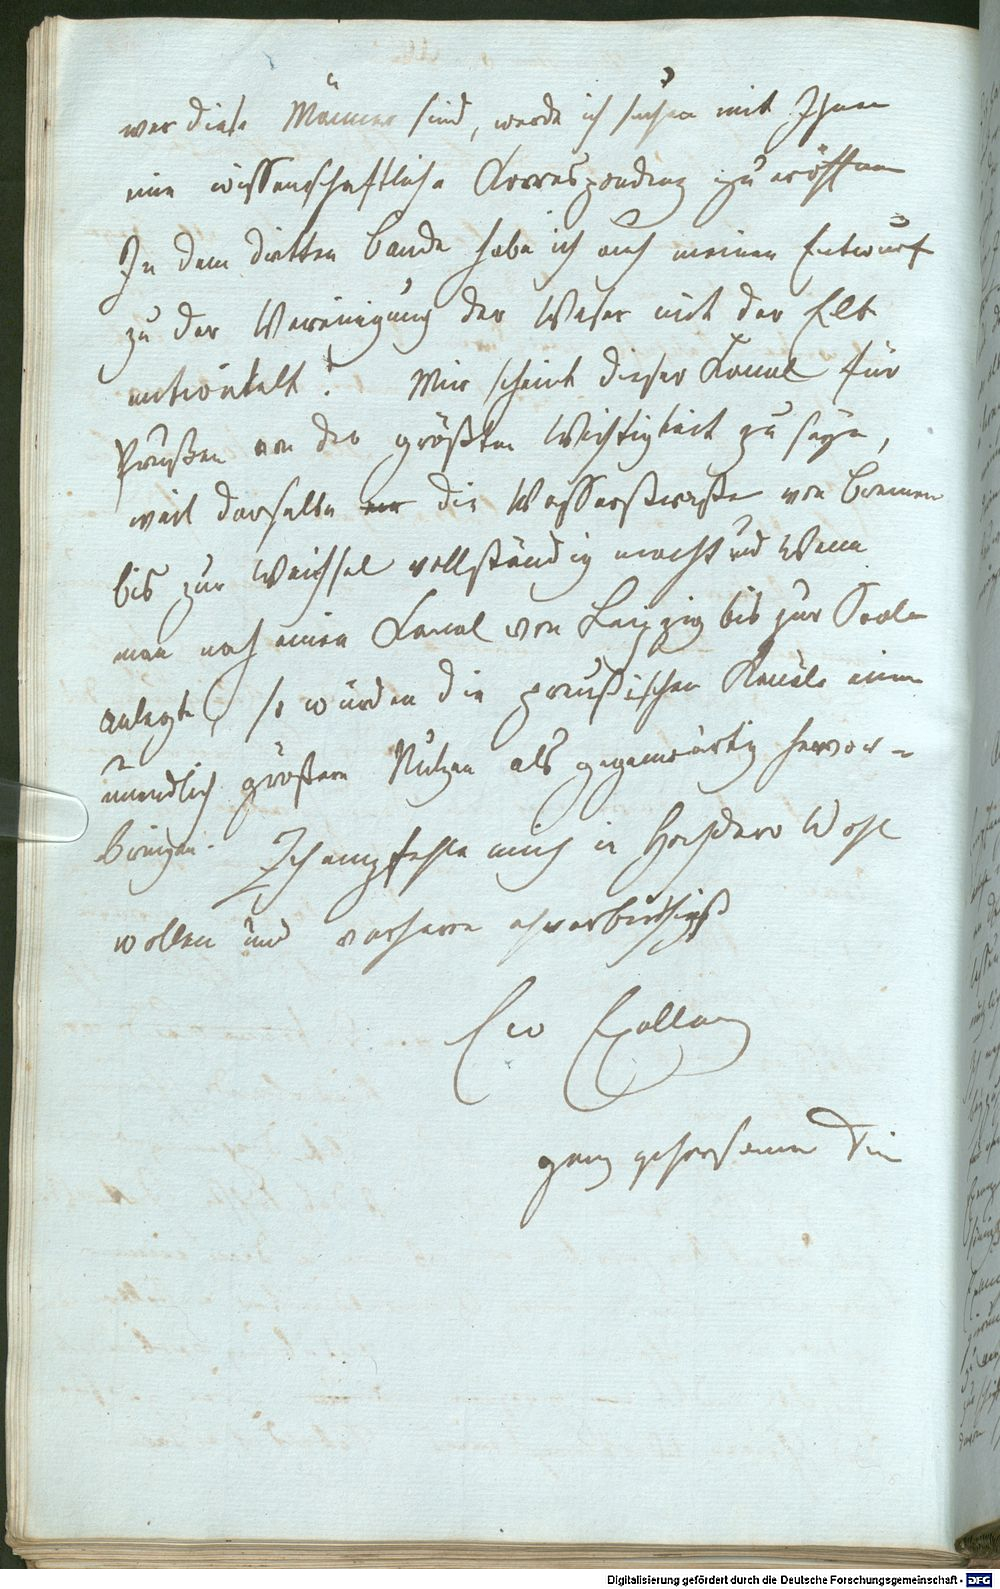 wer diese Männer sind, werde ich suchen mit Ihnen
eine wissenschaftliche Korrespondenz zu eröffnen
In dem dritten Bande habe ich auch meinen Entwurf
zu der Vereinigung der Weser mit der Elbe
entwikelt. Mir scheint dieser Kanal für
Preußen von der größten Wichtigkeit zu seyn,
weil derselbe die Wasserstraße von Bremen
bis zur Weichsel vollständig macht und Wenn
man noch einen Kanal von Leipzig bis zur Saale
anlegte, so würden die preußischen Kanäle einen
unendlich größern Nutzen als gegenwärtig hervor-
bringen. Ich empfehle mich in Hochdero Wohl
wollen und verharre ehrerbiethigst
Ew Exellenz
ganz gehorsamer
Digitalisierung gefördert durch die Deutsche Forschungsgemeinschaft - DFG